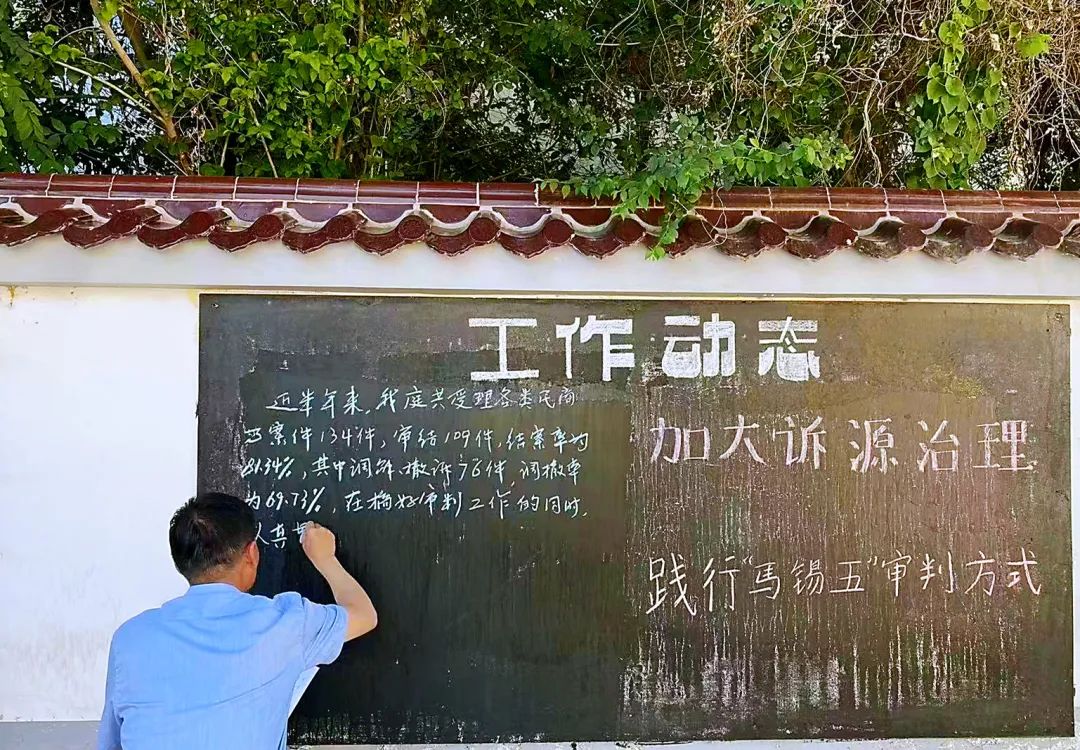 工作动态
近半年来,我庭共受理各类民商
事案件134件,审结109件,结案率为
81.34%,其中调解、撤诉76件,调撤率
为69.73%,在搞好审判工作的同时,
认真
加大诉源治理
践行"马锡五"审判方式